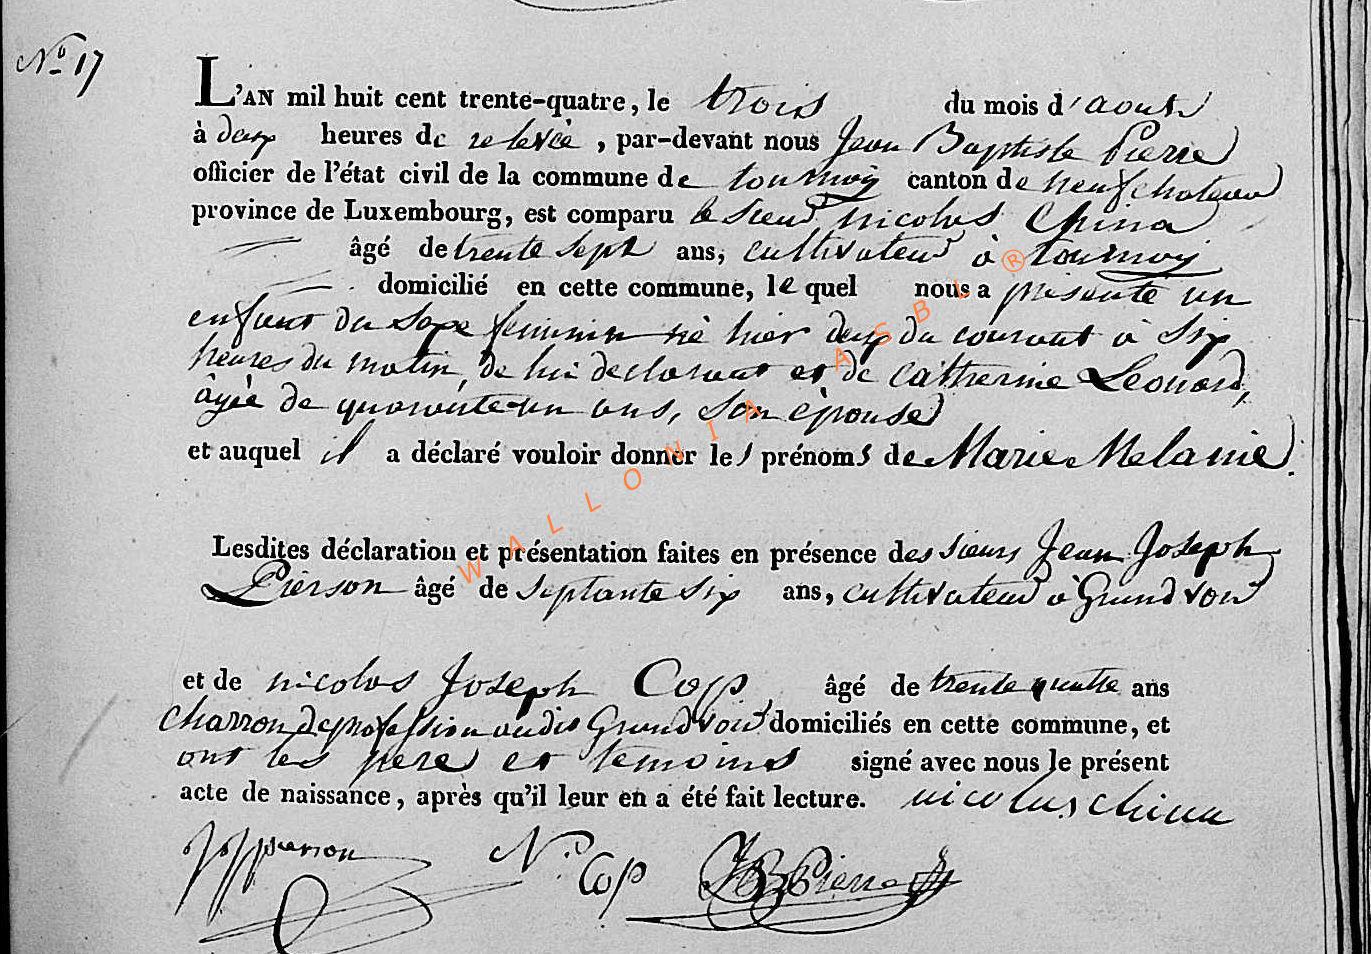 No 17
L'AN mil huit cent trente-quatre, le trois du mois d'aout
à deux heures de relevée, par-devant nous Jean Baptiste Pierre
officier de l'état civil de la commune de tournay canton de neufchateau
province de Luxembourg, est comparu le sieur nicolas China
âgé de trente sept ans, cultivateur à tournay
domicilié en cette commune, le quel nous a présenté un
enfant du sexe feminin né hier deux du courant à six
heures du matin, de lui declarant et de Catherine Leonard,
âgée de quarante-un ans, son épouse
et auquel il a déclaré vouloir donner les prénoms de Marie Melanie.
Lesdites déclaration et présentation faites en présence des sieurs Jean Joseph
Pierson âgé de septante six ans, cultivateur à Grandvoir
et de nicolas Joseph Cop âgé de trente quatre ans
charron de profession audit Grandvoir domiciliés en cette commune, et
ont les pere et temoins signé avec nous le présent
acte de naissance, après qu'il leur en a été fait lecture. nicolas china
JJpierson N. Cop JB Pierre
WALLONIA ASBL ®